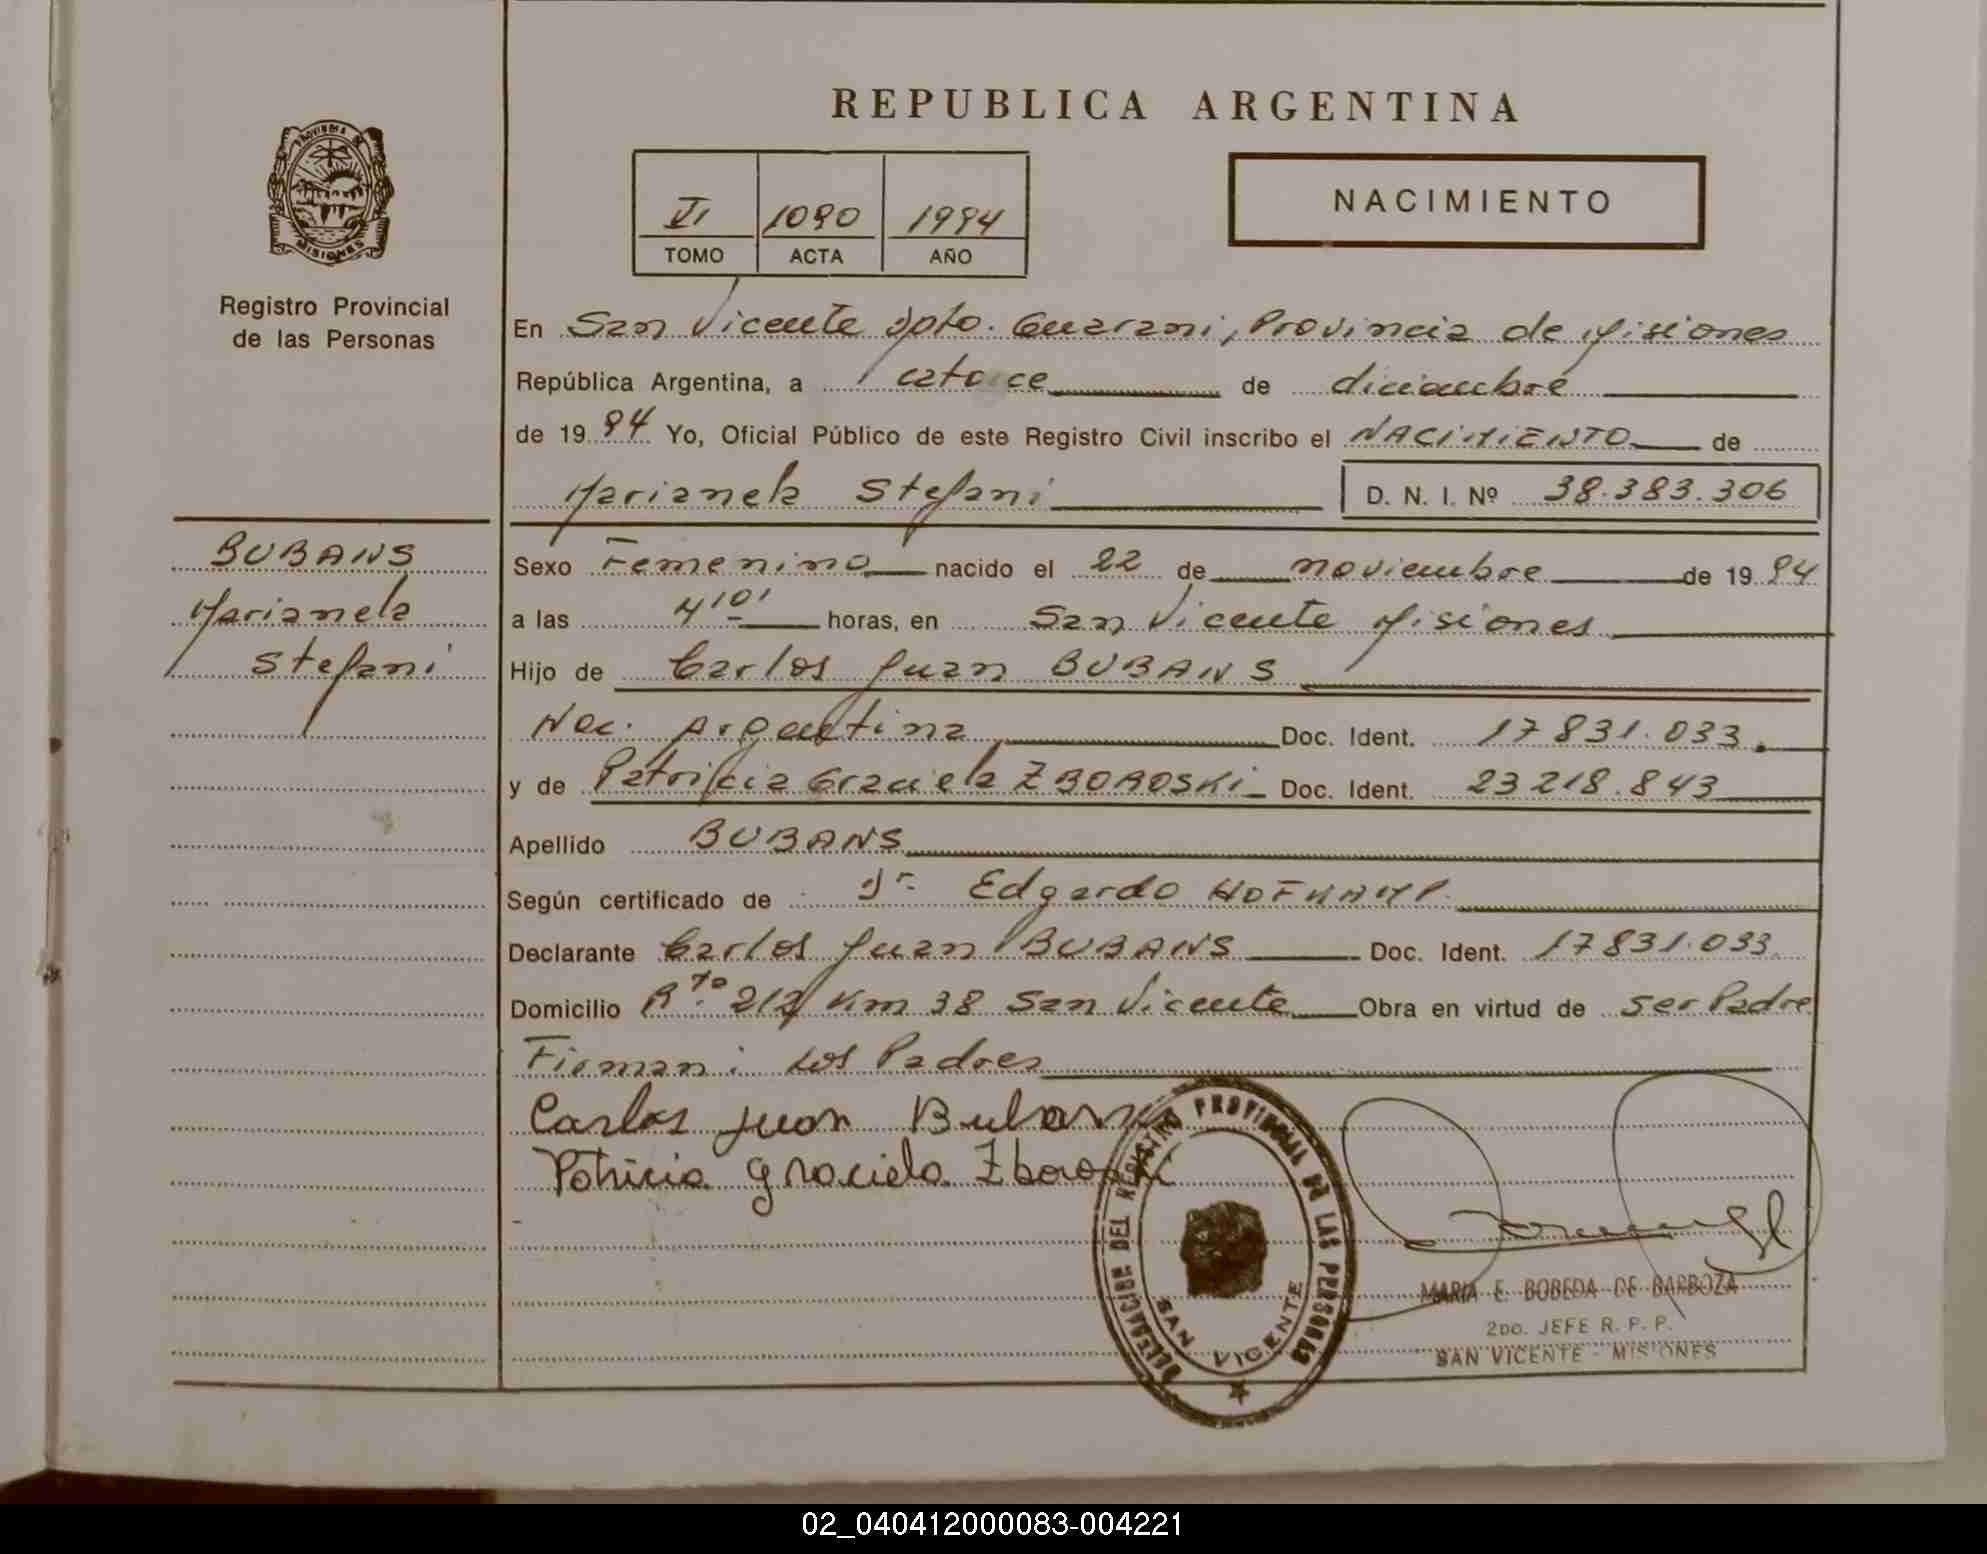 REPUBLICA ARGENTINA
PROVINCIA DE
MISIONES
Registro Provincial
de las Personas
VI 1090 1994
TOMO ACTA AÑO
NACIMIENTO
En San Vicente Dpto. Guarani, Provincia de Misiones
República Argentina, a catorce de diciembre
de 19 94 Yo, Oficial Público de este Registro Civil inscribo el NACIMIENTO de
Marianela Stefani D. N. I. Nº 38.383.306
BUBANS
Marianela
Stefani
Sexo Femenino nacido el 22 de noviembre de 19 94
a las 4'10' horas, en San Vicente Misiones
Hijo de Carlos Juan BUBANS
Nac. Argentina Doc. Ident. 17831.033.
y de Patricia Graciela ZBOROSKi Doc. Ident. 23218.843
Apellido BUBANS
Según certificado de Dr. Edgardo HOFKAMP.
Declarante Carlos Juan BUBANS Doc. Ident. 17831.033.
Domicilio Rta. 212 Km 38 San Vicente Obra en virtud de ser Padre
Firman: Los Padres
Carlos Juan Bubans
Patricia Graciela Zboroski
DELEGACION DEL REGISTRO PROVINCIAL DE LAS PERSONAS
SAN VICENTE
MARIA E. BOBEDA DE BARBOZA
2DO. JEFE R. P. P.
SAN VICENTE - MISIONES
02_040412000083-004221